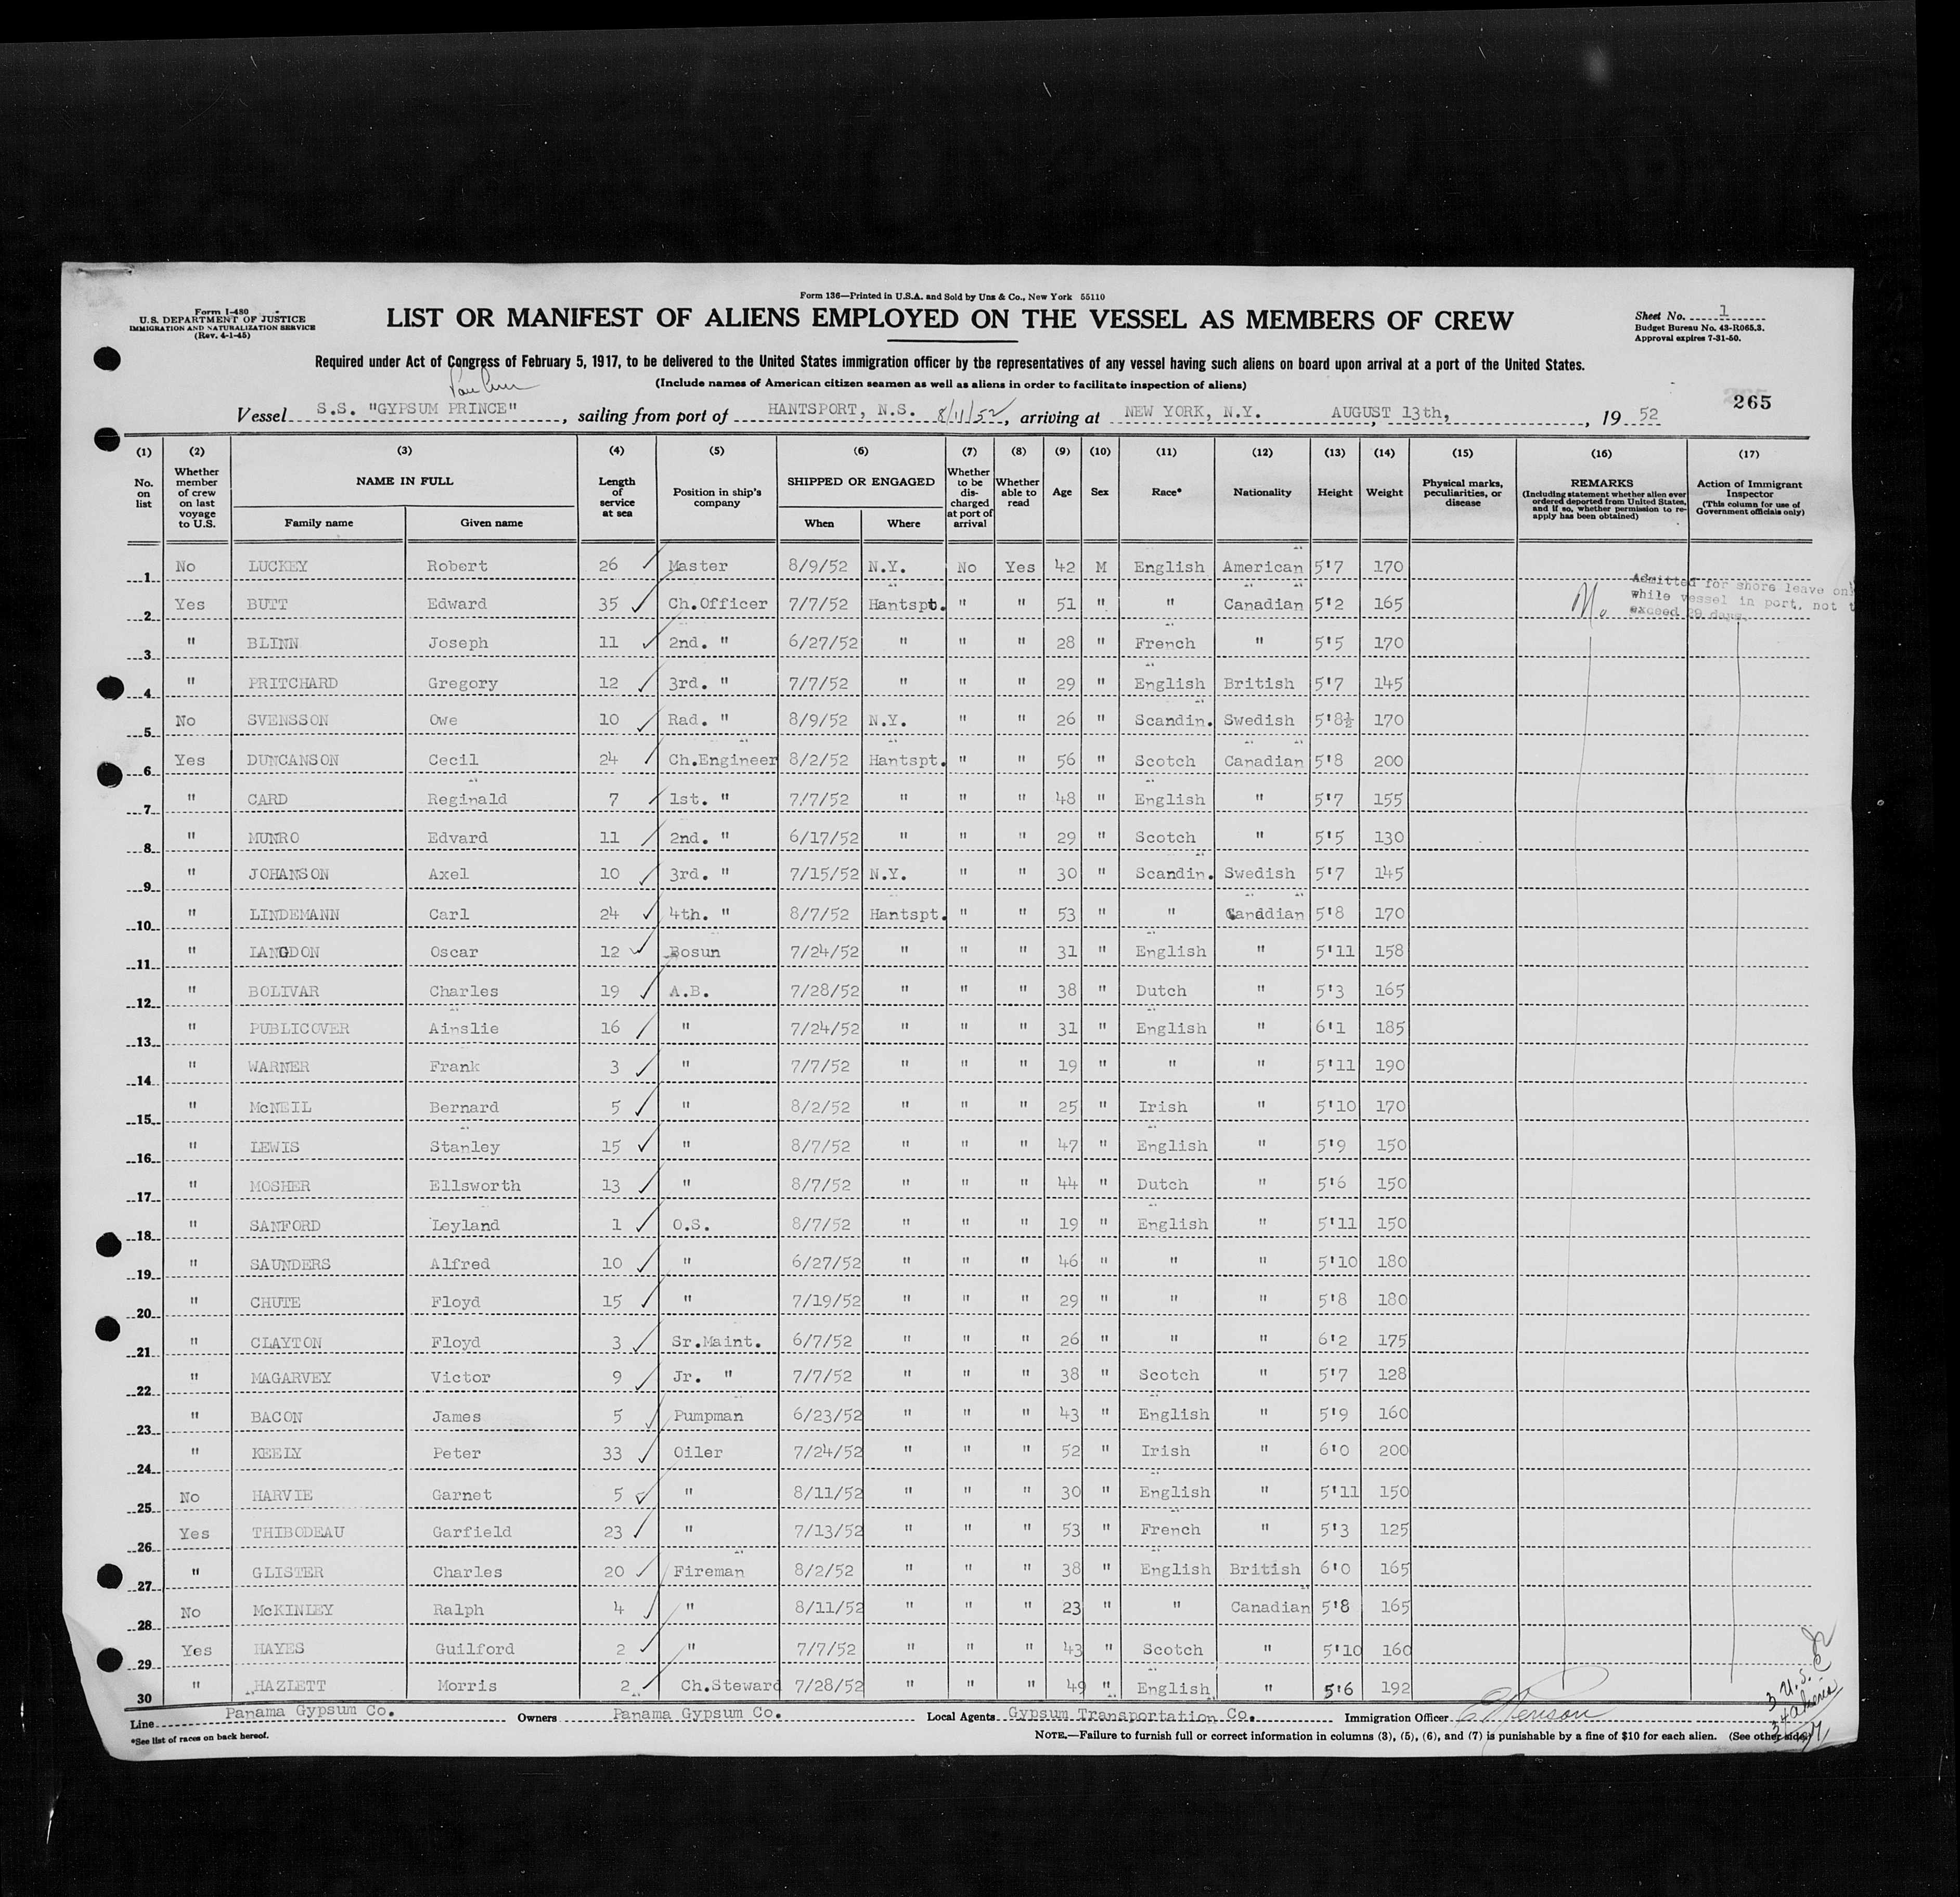 Form 136—Printed in U.S.A. and Sold by Unz & Co., New York 55110
Form I-480
U.S. DEPARTMENT OF JUSTICE
IMMIGRATION AND NATURALIZATION SERVICE
(Rev. 4-1-45)
LIST OR MANIFEST OF ALIENS EMPLOYED ON THE VESSEL AS MEMBERS OF CREW
Sheet No. 1
Budget Bureau No. 43-R065.3.
Approval expires 7-31-50.
Required under Act of Congress of February 5, 1917, to be delivered to the United States immigration officer by the representatives of any vessel having such aliens on board upon arrival at a port of the United States.
(Include names of American citizen seamen as well as aliens in order to facilitate inspection of aliens)
265
Vessel S.S. "GYPSUM PRINCE", sailing from port of HANTSPORT, N.S. 8/11/52, arriving at NEW YORK, N.Y. AUGUST 13th, 1952
(1) (2) (3) (4) (5) (6) (7) (8) (9) (10) (11) (12) (13) (14) (15) (16) (17)
No. on list
Whether member of crew on last voyage to U.S.
NAME IN FULL
Family name Given name
Length of service at sea
Position in ship's company
SHIPPED OR ENGAGED
When Where
Whether to be discharged at port of arrival
Whether able to read
Age
Sex
Race*
Nationality
Height
Weight
Physical marks, peculiarities, or disease
REMARKS
(Including statement whether alien ever ordered deported from United States, and if so, whether permission to reapply has been obtained)
Action of Immigrant Inspector
(This column for use of Government officials only)
1 No LUCKEY Robert 26 Master 8/9/52 N.Y. No Yes 42 M English American 5'7 170
Admitted for shore leave onl
while vessel in port, not t
exceed 29 days.
2 Yes BUTT Edward 35 Ch.Officer 7/7/52 Hantspt. " " 51 " " Canadian 5'2 165
3 " BLINN Joseph 11 2nd. " 6/27/52 " " " 28 " French " 5'5 170
4 " PRITCHARD Gregory 12 3rd. " 7/7/52 " " " 29 " English British 5'7 145
5 No SVENSSON Owe 10 Rad. " 8/9/52 N.Y. " " 26 " Scandin. Swedish 5'8½ 170
6 Yes DUNCANSON Cecil 24 Ch.Engineer 8/2/52 Hantspt. " " 56 " Scotch Canadian 5'8 200
7 " CARD Reginald 7 1st. " 7/7/52 " " " 48 " English " 5'7 155
8 " MUNRO Edvard 11 2nd. " 6/17/52 " " " 29 " Scotch " 5'5 130
9 " JOHANSON Axel 10 3rd. " 7/15/52 N.Y. " " 30 " Scandin. Swedish 5'7 145
10 " LINDEMANN Carl 24 4th. " 8/7/52 Hantspt. " " 53 " " Canadian 5'8 170
11 " LANGDON Oscar 12 Bosun 7/24/52 " " " 31 " English " 5'11 158
12 " BOLIVAR Charles 19 A.B. 7/28/52 " " " 38 " Dutch " 5'3 165
13 " PUBLICOVER Ainslie 16 " 7/24/52 " " " 31 " English " 6'1 185
14 " WARNER Frank 3 " 7/7/52 " " " 19 " " " 5'11 190
15 " McNEIL Bernard 5 " 8/2/52 " " " 25 " Irish " 5'10 170
16 " LEWIS Stanley 15 " 8/7/52 " " " 47 " English " 5'9 150
17 " MOSHER Ellsworth 13 " 8/7/52 " " " 44 " Dutch " 5'6 150
18 " SANFORD Leyland 1 O.S. 8/7/52 " " " 19 " English " 5'11 150
19 " SAUNDERS Alfred 10 " 6/27/52 " " " 46 " " " 5'10 180
20 " CHUTE Floyd 15 " 7/19/52 " " " 29 " " " 5'8 180
21 " CLAYTON Floyd 3 Sr.Maint. 6/7/52 " " " 26 " " " 6'2 175
22 " MAGARVEY Victor 9 Jr. " 7/7/52 " " " 38 " Scotch " 5'7 128
23 " BACON James 5 Pumpman 6/23/52 " " " 43 " English " 5'9 160
24 " KEELY Peter 33 Oiler 7/24/52 " " " 52 " Irish " 6'0 200
25 No HARVIE Garnet 5 " 8/11/52 " " " 30 " English " 5'11 150
26 Yes THIBODEAU Garfield 23 " 7/13/52 " " " 53 " French " 5'3 125
27 " GLISTER Charles 20 Fireman 8/2/52 " " " 38 " English British 6'0 165
28 No McKINLEY Ralph 4 " 8/11/52 " " " 23 " " Canadian 5'8 165
29 Yes HAYES Guilford 2 " 7/7/52 " " " 43 " Scotch " 5'10 160
30 " HAZLETT Morris 2 Ch.Steward 7/28/52 " " " 49 " English " 5'6 192
3 U.S.
34 aliens
37
Line Panama Gypsum Co. Owners Panama Gypsum Co. Local Agents Gypsum Transportation Co. Immigration Officer
*See list of races on back hereof.
NOTE.—Failure to furnish full or correct information in columns (3), (5), (6), and (7) is punishable by a fine of $10 for each alien. (See other side)